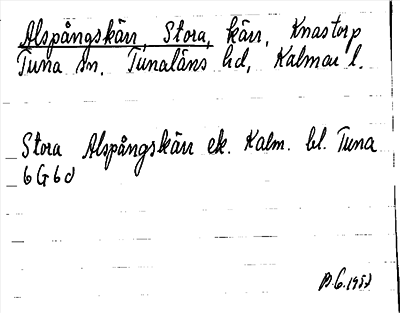 Alspångskärr, Stora, kärr, Knastorp
Tuna sn, Tunaläns hd, Kalmar l.
Stora Alspångskärr ek. Kalm. bl. Tuna
6G6d
1952